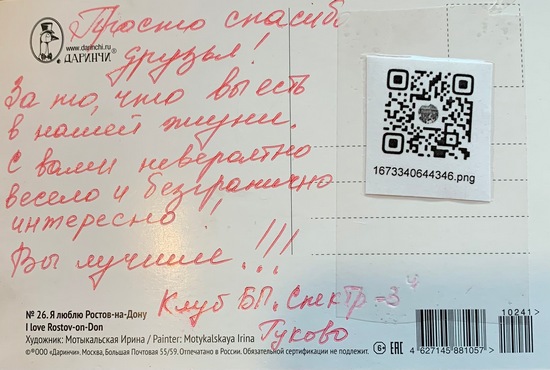 Просто спасибо
друзья!
www.darinchi.ru
ДАРИНЧИ
За то, что вы есть
в нашей жизни.
С вами невероятно
весело и безгранично
интересно!!
Вы лучшие...!!!
Клуб БП. "Спектр-3"
Гуково
1673340644346.png
№ 26. Я люблю Ростов-на-Дону
I love Rostov-on-Don
Художник: Мотыкальская Ирина / Painter: Motykalskaya Irina
©®ООО «Даринчи», Москва, Большая Почтовая 55/59. Отпечатано в России. Обязательной сертификации не подлежит.
6+ EAC
10241>
4 627145 881057 >